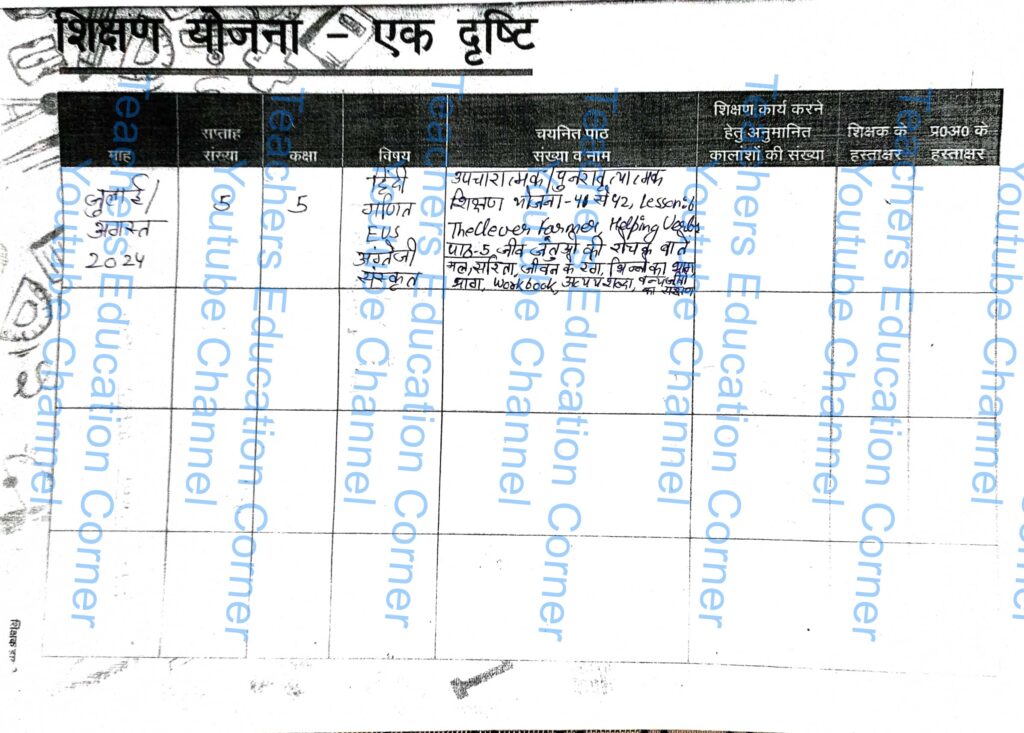 शिक्षण योजना – एक दृष्टि
माह
सप्ताह संख्या
कक्षा
विषय
चयनित पाठ संख्या व नाम
शिक्षण कार्य करने हेतु अनुमानित कालांशों की संख्या
शिक्षक के हस्ताक्षर
प्र0अ0 के हस्ताक्षर
जुलाई/
अगस्त
2024
5
5
हिंदी
गणित
EVS
अंग्रेजी
संस्कृत
उपचारात्मक/पुनरावृत्यात्मक
शिक्षण योजना-41 से 42, Lesson:6
The Clever Farmer, Helping Verbs
पाठ-5 जीव जंतुओं की रोचक बातें
सरिता, जीवन के रंग, भिन्न का
भाग, workbook,
Teachers Education Corner
Youtube Channel
Teachers Education Corner
Youtube Channel
Teachers Education Corner
Youtube Channel
Teachers Education Corner
Youtube Channel
Teachers Education Corner
Youtube Channel
Teachers Education Corner
Youtube Channel